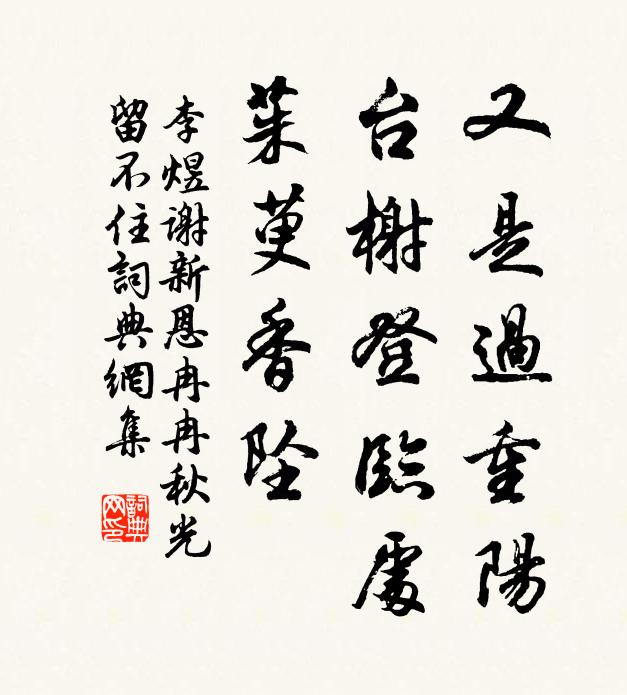 又是過重陽
台榭登臨處
茱萸香坠
李煜谢新恩冉冉秋光
留不住詞典網集
詞典
网印